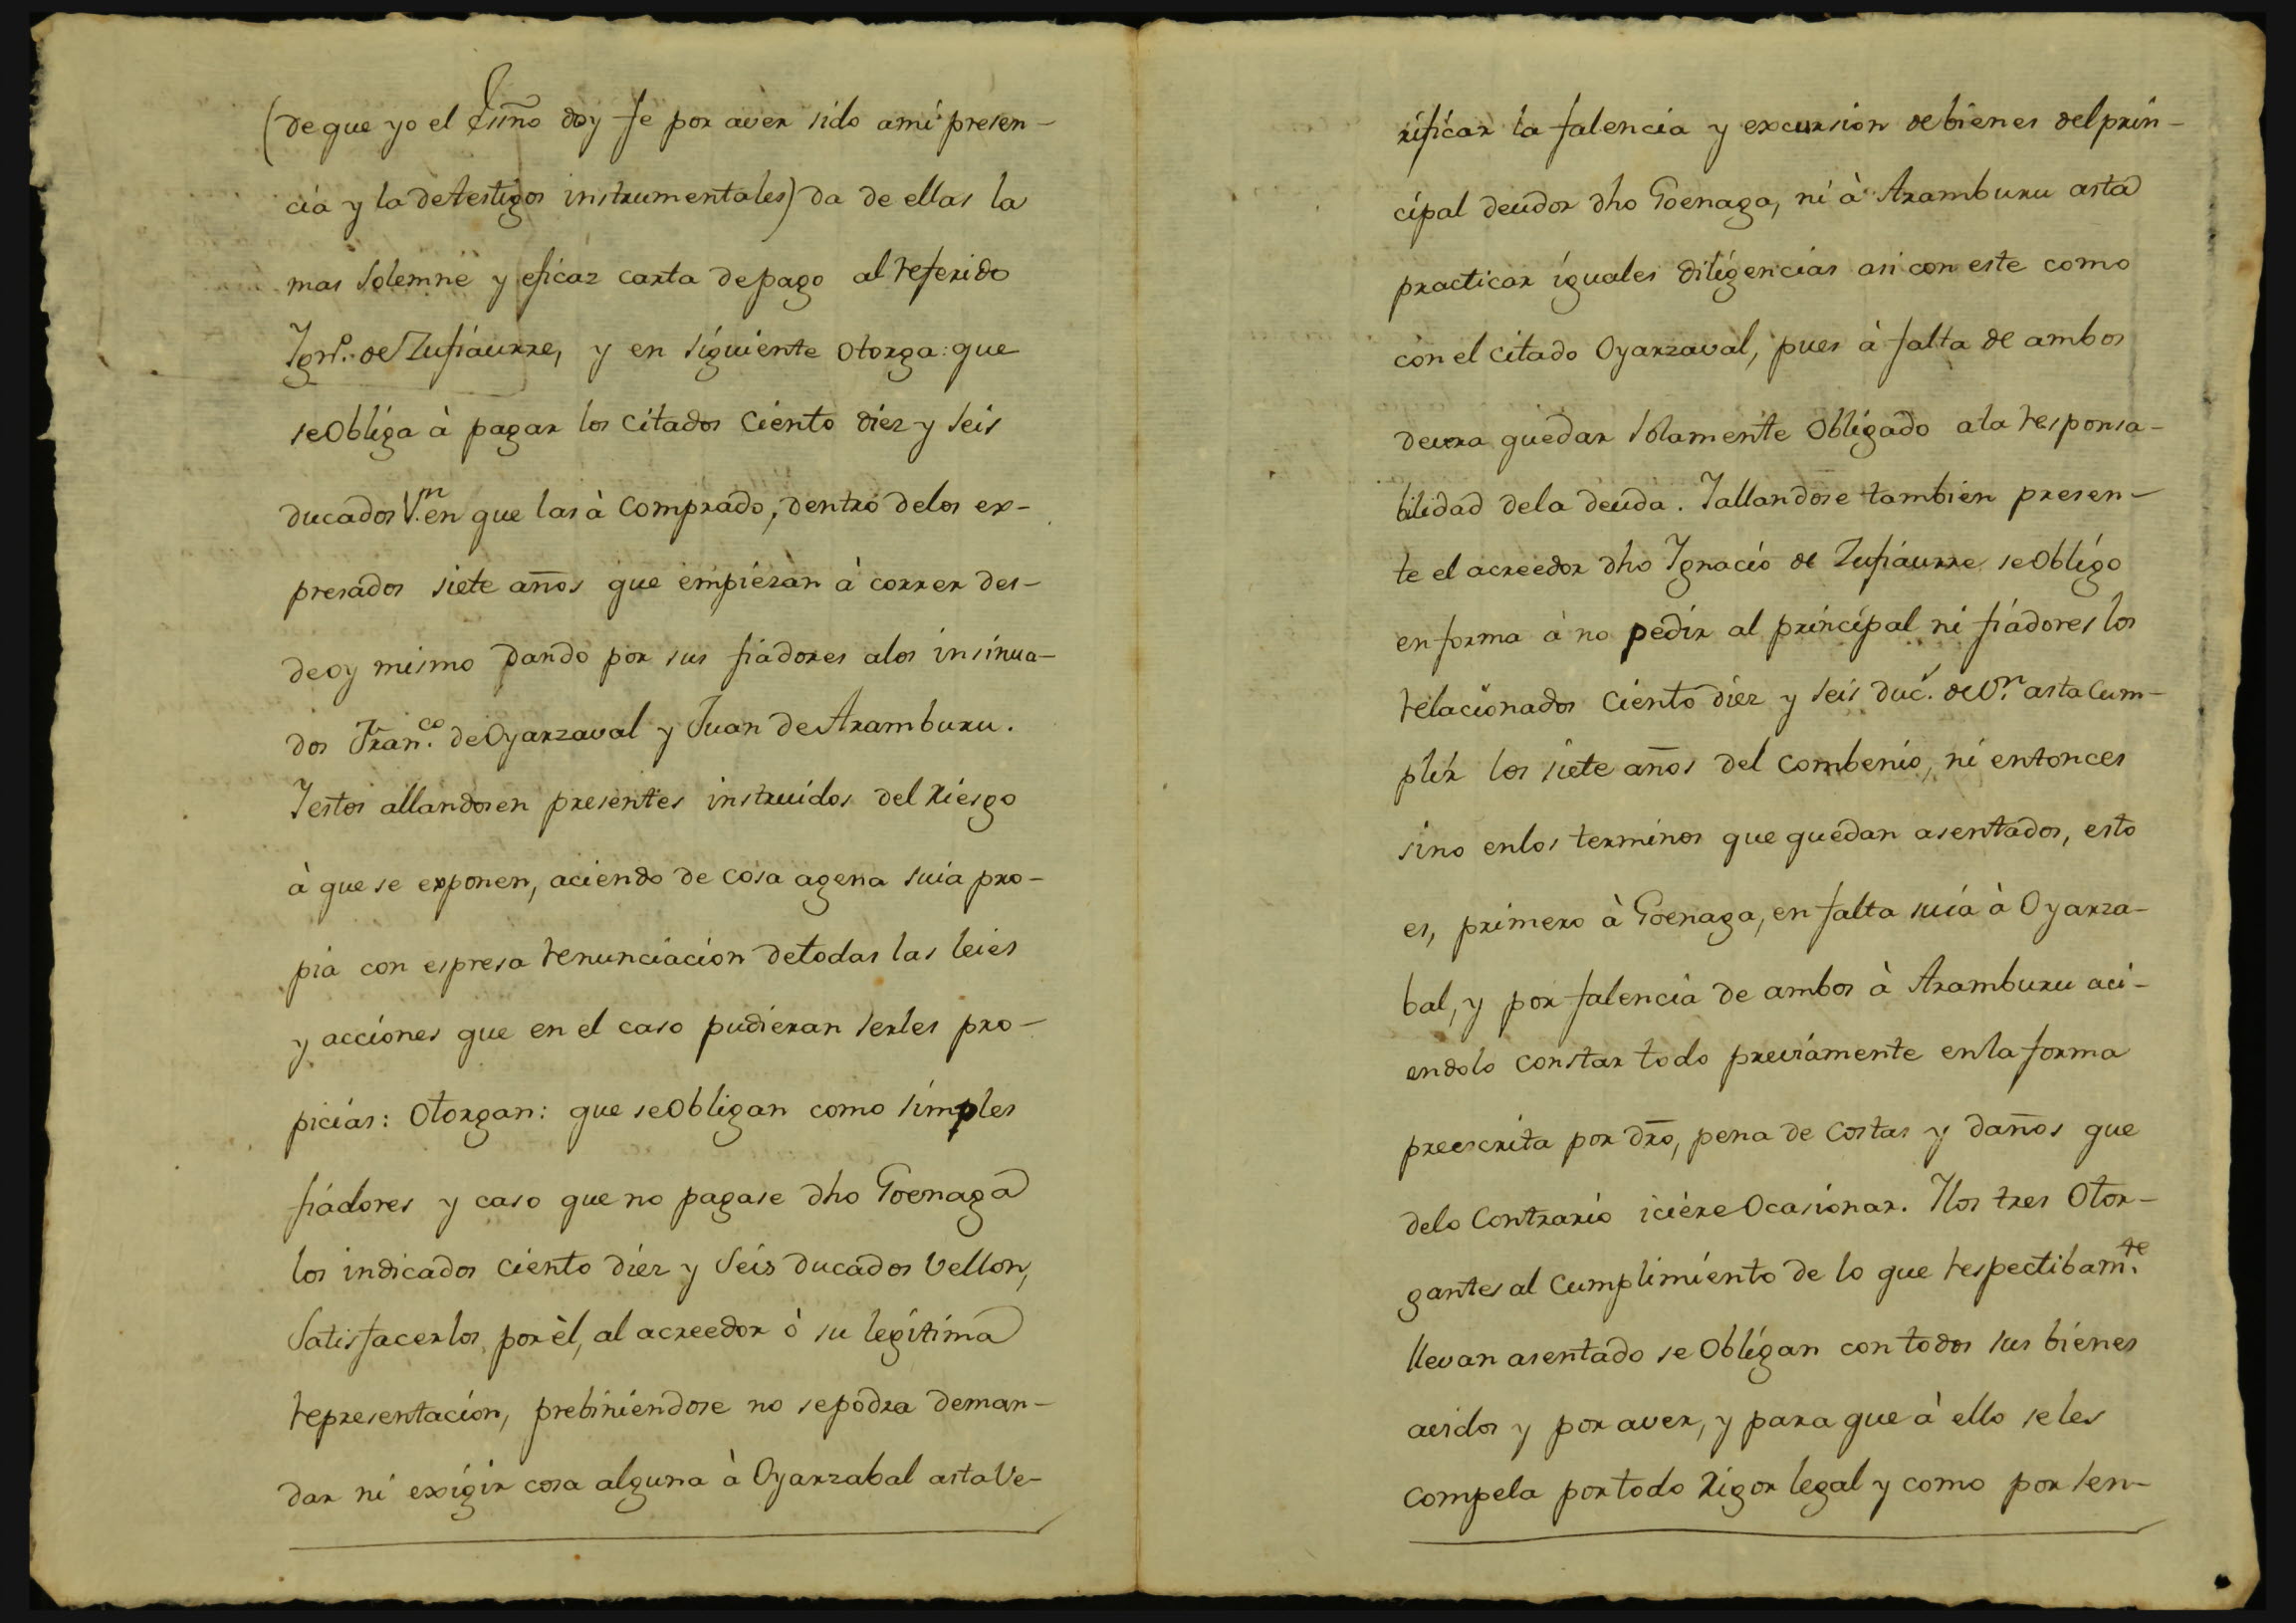 (de que yo el Essño doy fe por aver sido ami presen-
cia y la de testigos instrumentales) da de ellas la
mas Solemne y eficaz carta de pago al referido
Ygnº. de Zufiaurre, y en siguiente Otorga: que
se Obliga à pagar los Citados Ciento diez y seis
ducados V.n en que las à Comprado, dentro delos ex-
presados siete años que empiezan à correr des-
de oy mismo dando por sus fiadores alos insinua-
dos Fran.co de Oyarzaval y Juan de Aramburu.
Yestos allandosen presentes instruidos del Riesgo
à que se exponen, aciendo de cosa agena suia pro-
pia con espresa renunciacion detodas las leies
y acciones que en el caso pudieran serles pro-
picias: Otorgan: que se Obligan como simples
fiadores y caso que no pagase dho Goenaga
los indicados ciento diez y Seis ducados Vellon,
Satisfacerlos por èl, al acreedor ò su legitima
representacion, prebiniendose no sepodra deman-
dar ni exigir cosa alguna à Oyarzabal asta Ve-
rificar la falencia y excursion de bienes del prin-
cipal deudor dho Goenaga, ni à Aramburu asta
practicar iguales diligencias asi con este como
con el citado Oyarzaval, pues à falta de ambos
devera quedar Solamente Obligado ala responsa-
bilidad dela deuda. Yallandose tambien presen-
te el acreedor dho Ygnacio de Zufiaurre se Obligo
en forma à no pedir al principal ni fiadores los
relacionados Ciento diez y seis duc.s de V.n asta Cum-
plir los siete años del Combenio, ni entonces
sino enlos terminos que quedan asentados, esto
es, primero à Goenaga, en falta suia à Oyarza-
bal, y por falencia de ambos à Aramburu aci-
endolo constar todo previamente enla forma
preescrita por dro, pena de Costas y daños que
delo Contrario iciere Ocasionar. Ylos tres Otor-
gantes al Cumplimiento de lo que respectibam.te
llevan asentado se Obligan con todos sus bienes
avidos y por aver, y para que à ello se les
compela por todo Rigor legal y como por sen-